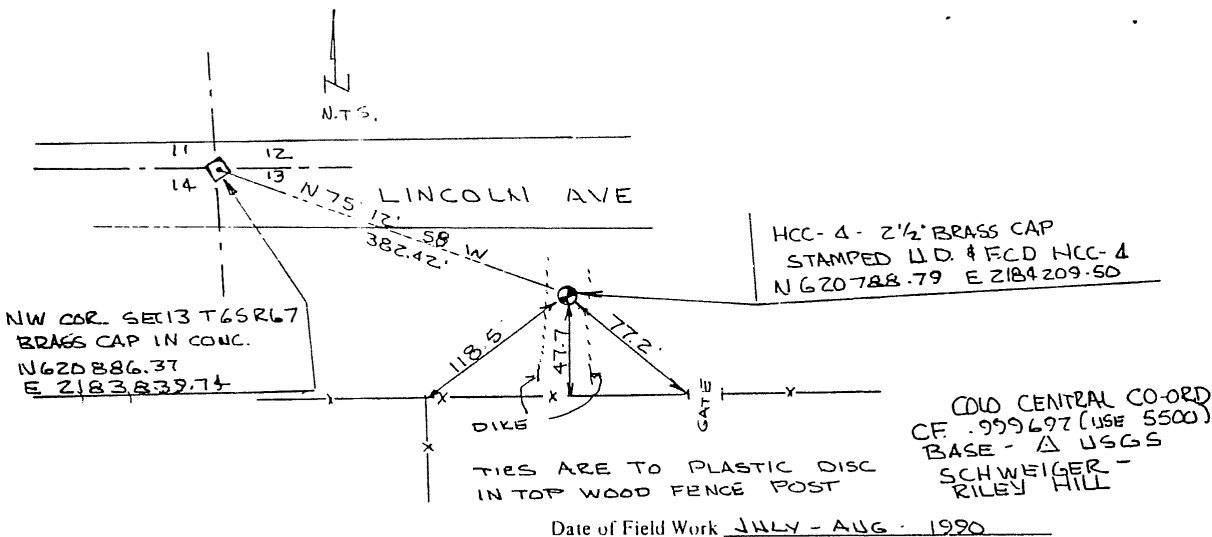 N.T.S.
11 12
14 13
LINCOLN AVE
N 75° 12' 58 W
382.42'
HCC-4 - 2½" BRASS CAP
STAMPED U.D. & FCD HCC-4
N 620788.79 E 2184209.50
NW COR. SEC13 T6SR67
BRASS CAP IN CONC.
N620886.37
E 2183,839.74
118.5'
47.7
77.2'
GATE
DIKE
TIES ARE TO PLASTIC DISC
IN TOP WOOD FENCE POST
COLO CENTRAL CO-ORD
CF. .999697 (USE 5500)
BASE - △ USGS
SCHWEIGER -
RILEY HILL
Date of Field Work JULY - AUG. 1990